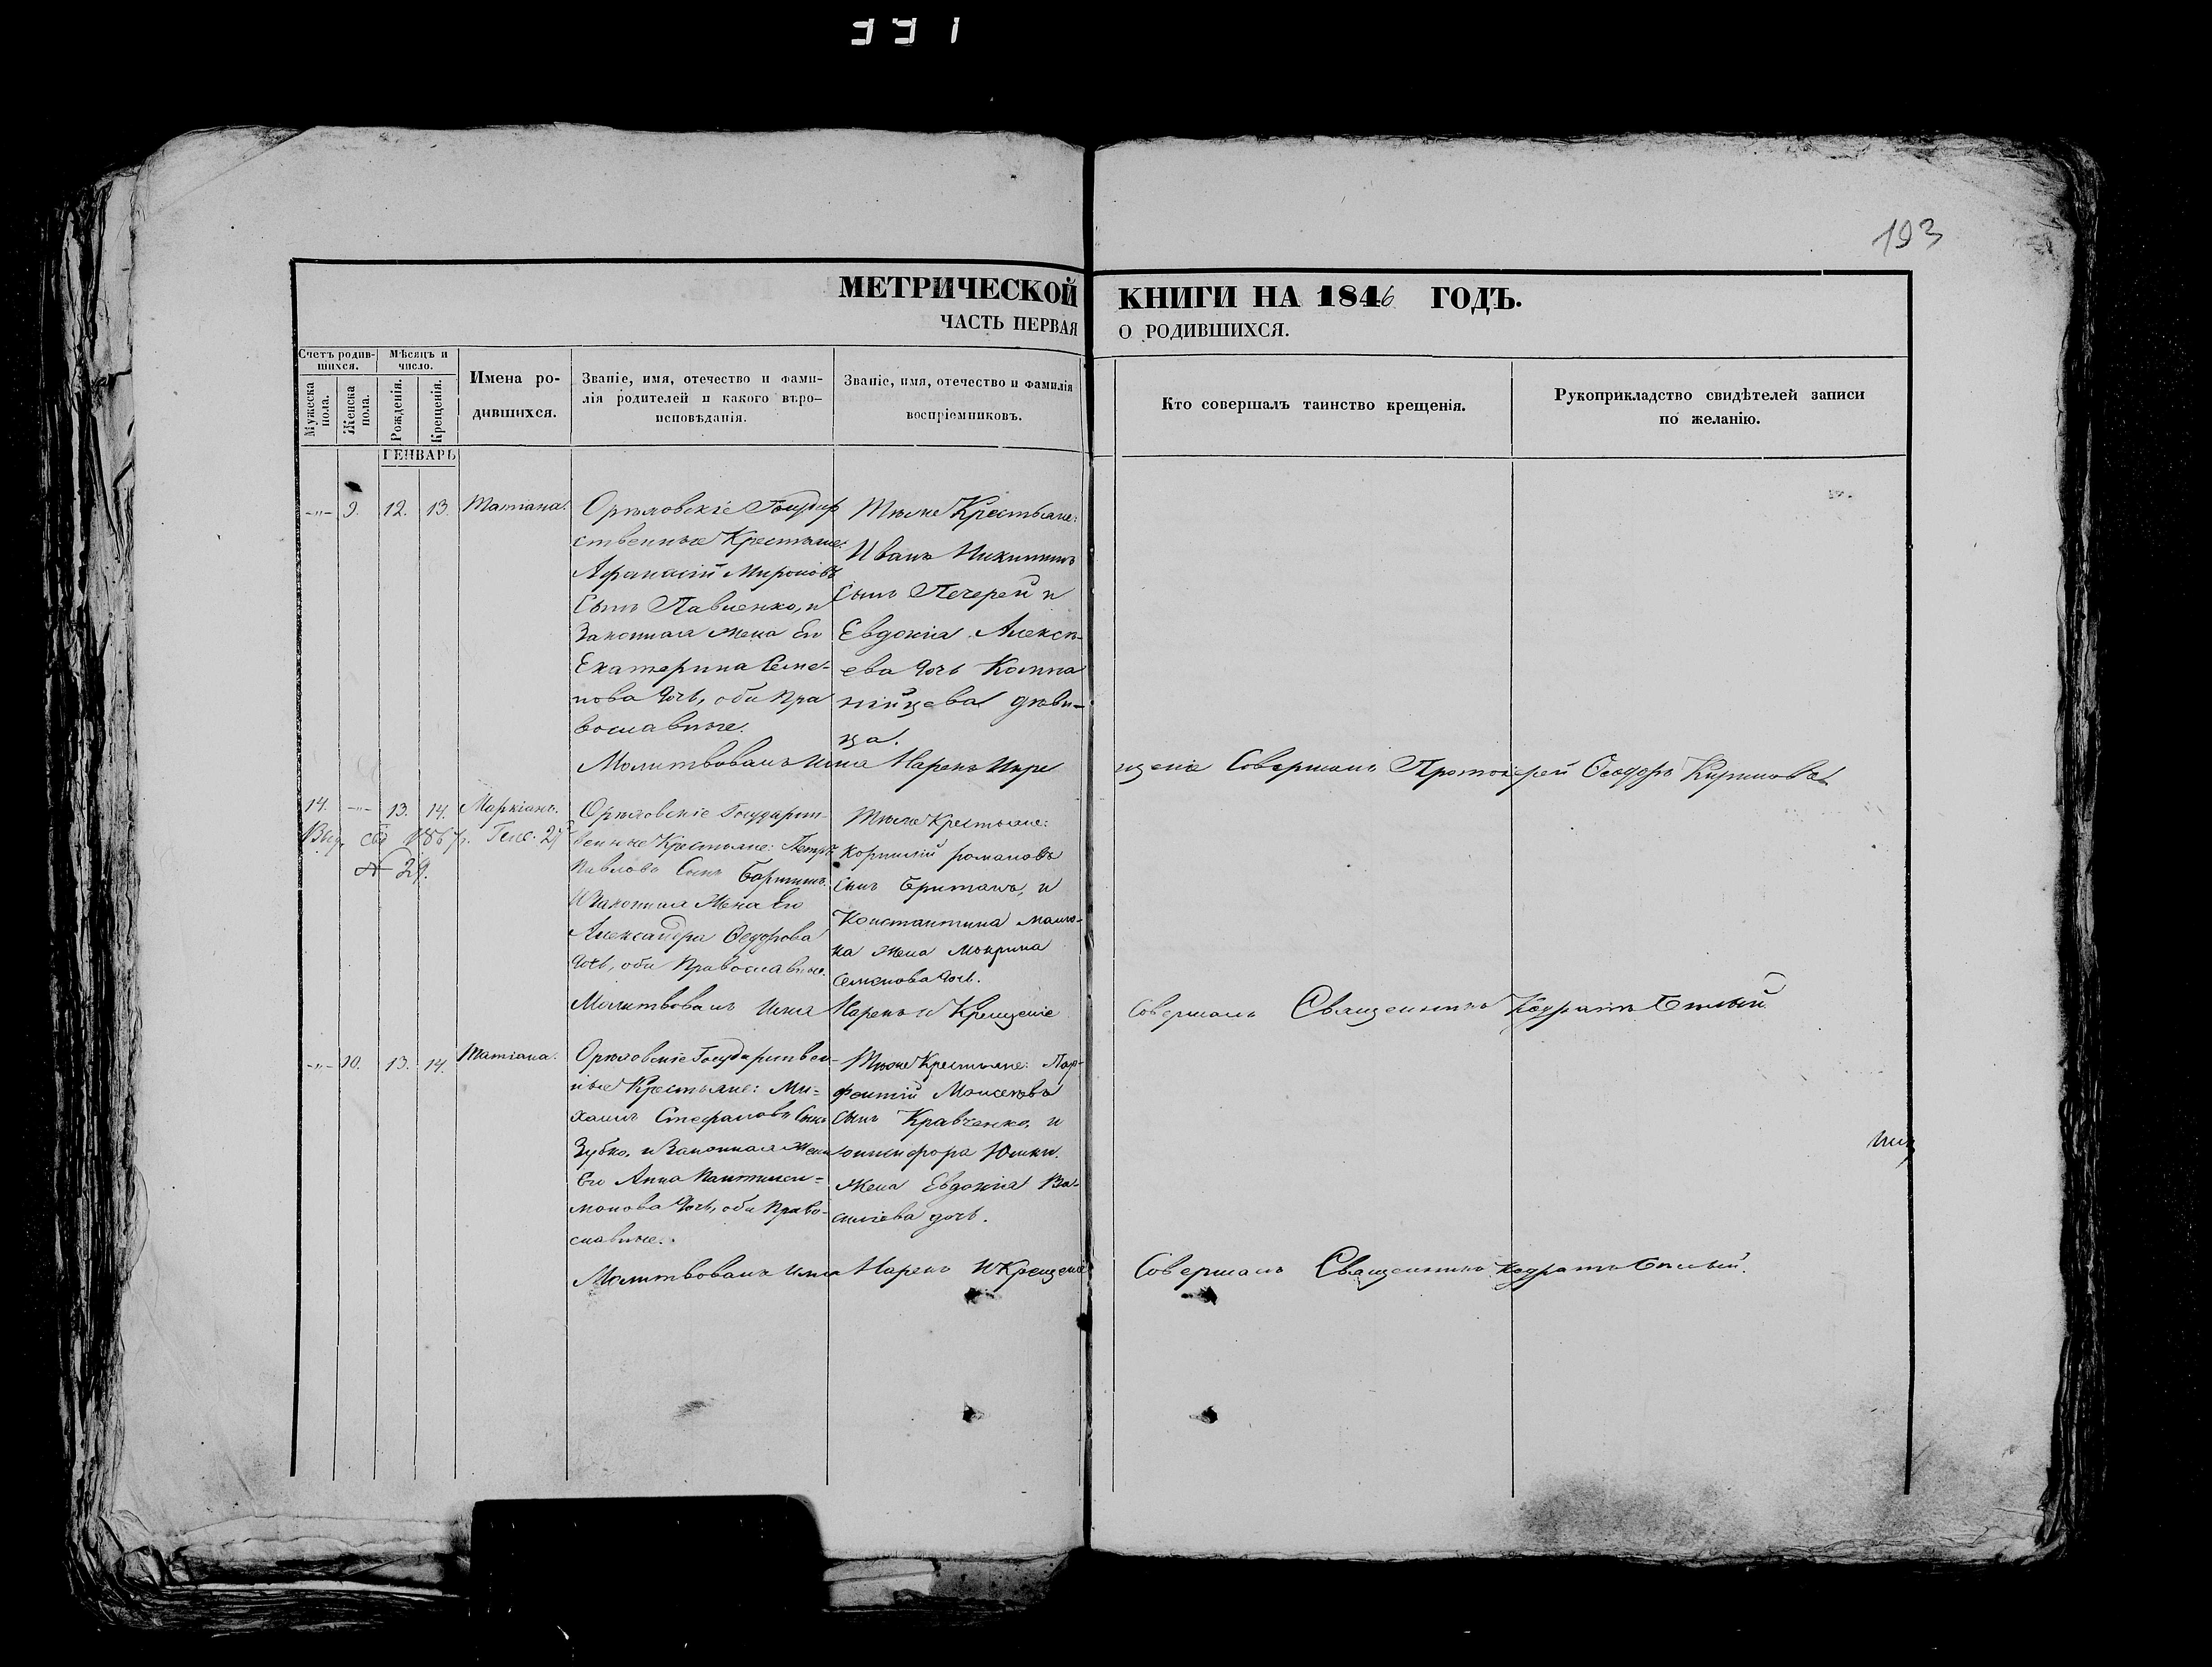 331
193
МЕТРИЧЕСКОЙ КНИГИ НА 1846 ГОДЪ.
ЧАСТЬ ПЕРВАЯ О РОДИВШИХСЯ.
Счетъ родив-
шихся.
Мужеска пола.
Женска пола.
Мѣсяцъ и
число.
Рожденія.
Крещенія.
Имена ро-
дившихся.
Званіе, имя, отечество и фами-
лія родителей и какого вѣро-
исповѣданія.
Званіе, имя, отечество и фамилія
воспріемниковъ.
Кто совершалъ таинство крещенія.
Рукоприкладство свидѣтелей записи
по желанію.
ГЕНВАРЬ
-"- 9. 12. 13. Татіана.
Орѣловскіе Государ
ственные Крестьяне:
Афанасій Мироновъ
Сынъ Павленко, и
Законная жена Его
Екатерина Семе-
нова дочь, оба Пра
вославные.
Тѣже Крестьяне:
Иванъ Никитинъ
Сынъ Печерей и
Евдокія Алексѣ-
ева дочь Компа
нійцева дѣви-
ца.
Молитвовалъ Имя Нарекъ Икре щеніе Совершалъ Протоіерей Ѳеодоръ
14. -"- 13. 14. Маркіанъ.
Выд. свд 1867г. Генв. 29
№ 29.
Орѣловскіе Государст-
венные Крестьяне: Петръ
Павловъ Сынъ
Изаконная Жена Его
Александра Ѳедорова
дочь, оба Православные.
Тѣже Крестьяне:
Корнилій романовъ
Сынъ Бритавъ, и
Константина
ка жена Мокрина
Семенова дочь.
Молитвовалъ Имя Нарекъ И Крещеніе Совершалъ Священникъ Кодратъ Бѣлый
-"- 10. 13. 14. Татіана.
Орѣловскіе Государствен-
ные Крестьяне: Ми-
хаилъ Стефановъ Сынъ
Зубко, и Законная Жена
Его Анна Пантелеи-
монова дочь, оба Право-
славные.
Тѣже Крестьяне: Пар-
фентій Моисеевъ
Сынъ Кравченко, и
Юшки.
Жена Евдокія Ва-
силіева дочь.
Молитвовалъ Имя Нарекъ И Крещеніе Совершалъ Священникъ Кодратъ Бѣлый.